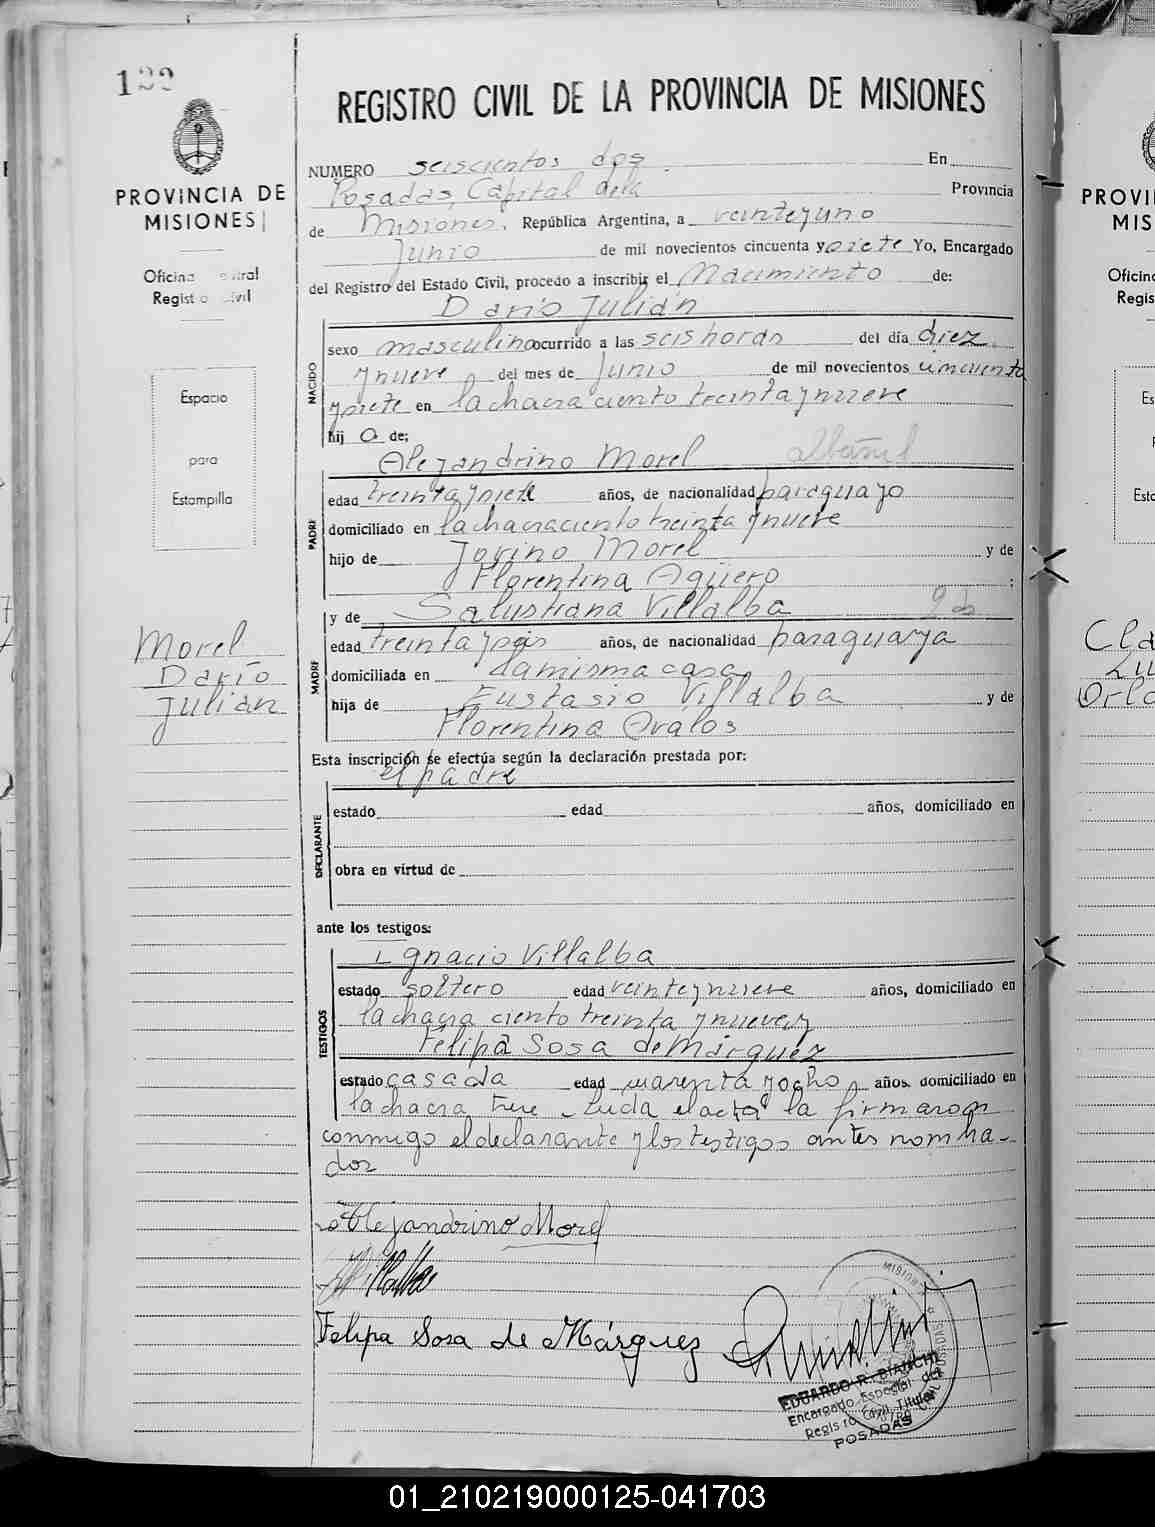 122
PROVINCIA DE
MISIONES
Oficina
Regist
Espacio
para
Estampilla
Morel
Darío
Julián
REGISTRO CIVIL DE LA PROVINCIA DE MISIONES
NUMERO seiscientos dos En
Posadas, Capital dela Provincia
de Misiones, República Argentina, a veinteyuno
Junio de mil novecientos cincuenta y siete Yo, Encargado
del Registro del Estado Civil, procedo a inscribir el Nacimiento de:
Darío Julián
NACIDO
sexo masculino ocurrido a las seis horas del día diez
ynueve del mes de Junio de mil novecientos cincuenta
ysiete en la chacra ciento treinta ynueve
hij o de:
Alejandrino Morel Albañil
PADRE
edad treinta ysiete años, de nacionalidad paraguayo
domiciliado en la chacra ciento treinta ynueve
hijo de Jovino Morel y de
Florentina Agüero ;
y de Salustiana Villalba
MADRE
edad treinta yseis años, de nacionalidad paraguaya
domiciliada en la misma casa
hija de Eustasio Villalba y de
Florentina Ovalos
Esta inscripción se efectúa según la declaración prestada por:
el padre
DECLARANTE
estado edad años, domiciliado en
obra en virtud de
ante los testigos:
Ignacio Villalba
TESTIGOS
estado soltero edad veinteynueve años, domiciliado en
la chacra ciento treinta ynueve y
Felipa Sosa de Márquez
estado casada edad cuarenta yocho años, domiciliado en
la chacra Leída el acta la firmaron
conmigo el declarante y los testigos antes nombra-
dos
Alejandrino Morel
Villalba
Felipa Sosa de Márquez
EDUARDO R. BIANCHI
Encargado Especial del
Registro Civil Titular
POSADAS
PROVI
MIS
Oficina
Regis
Es
Esta
Cla
Lu
Orla
01_210219000125-041703